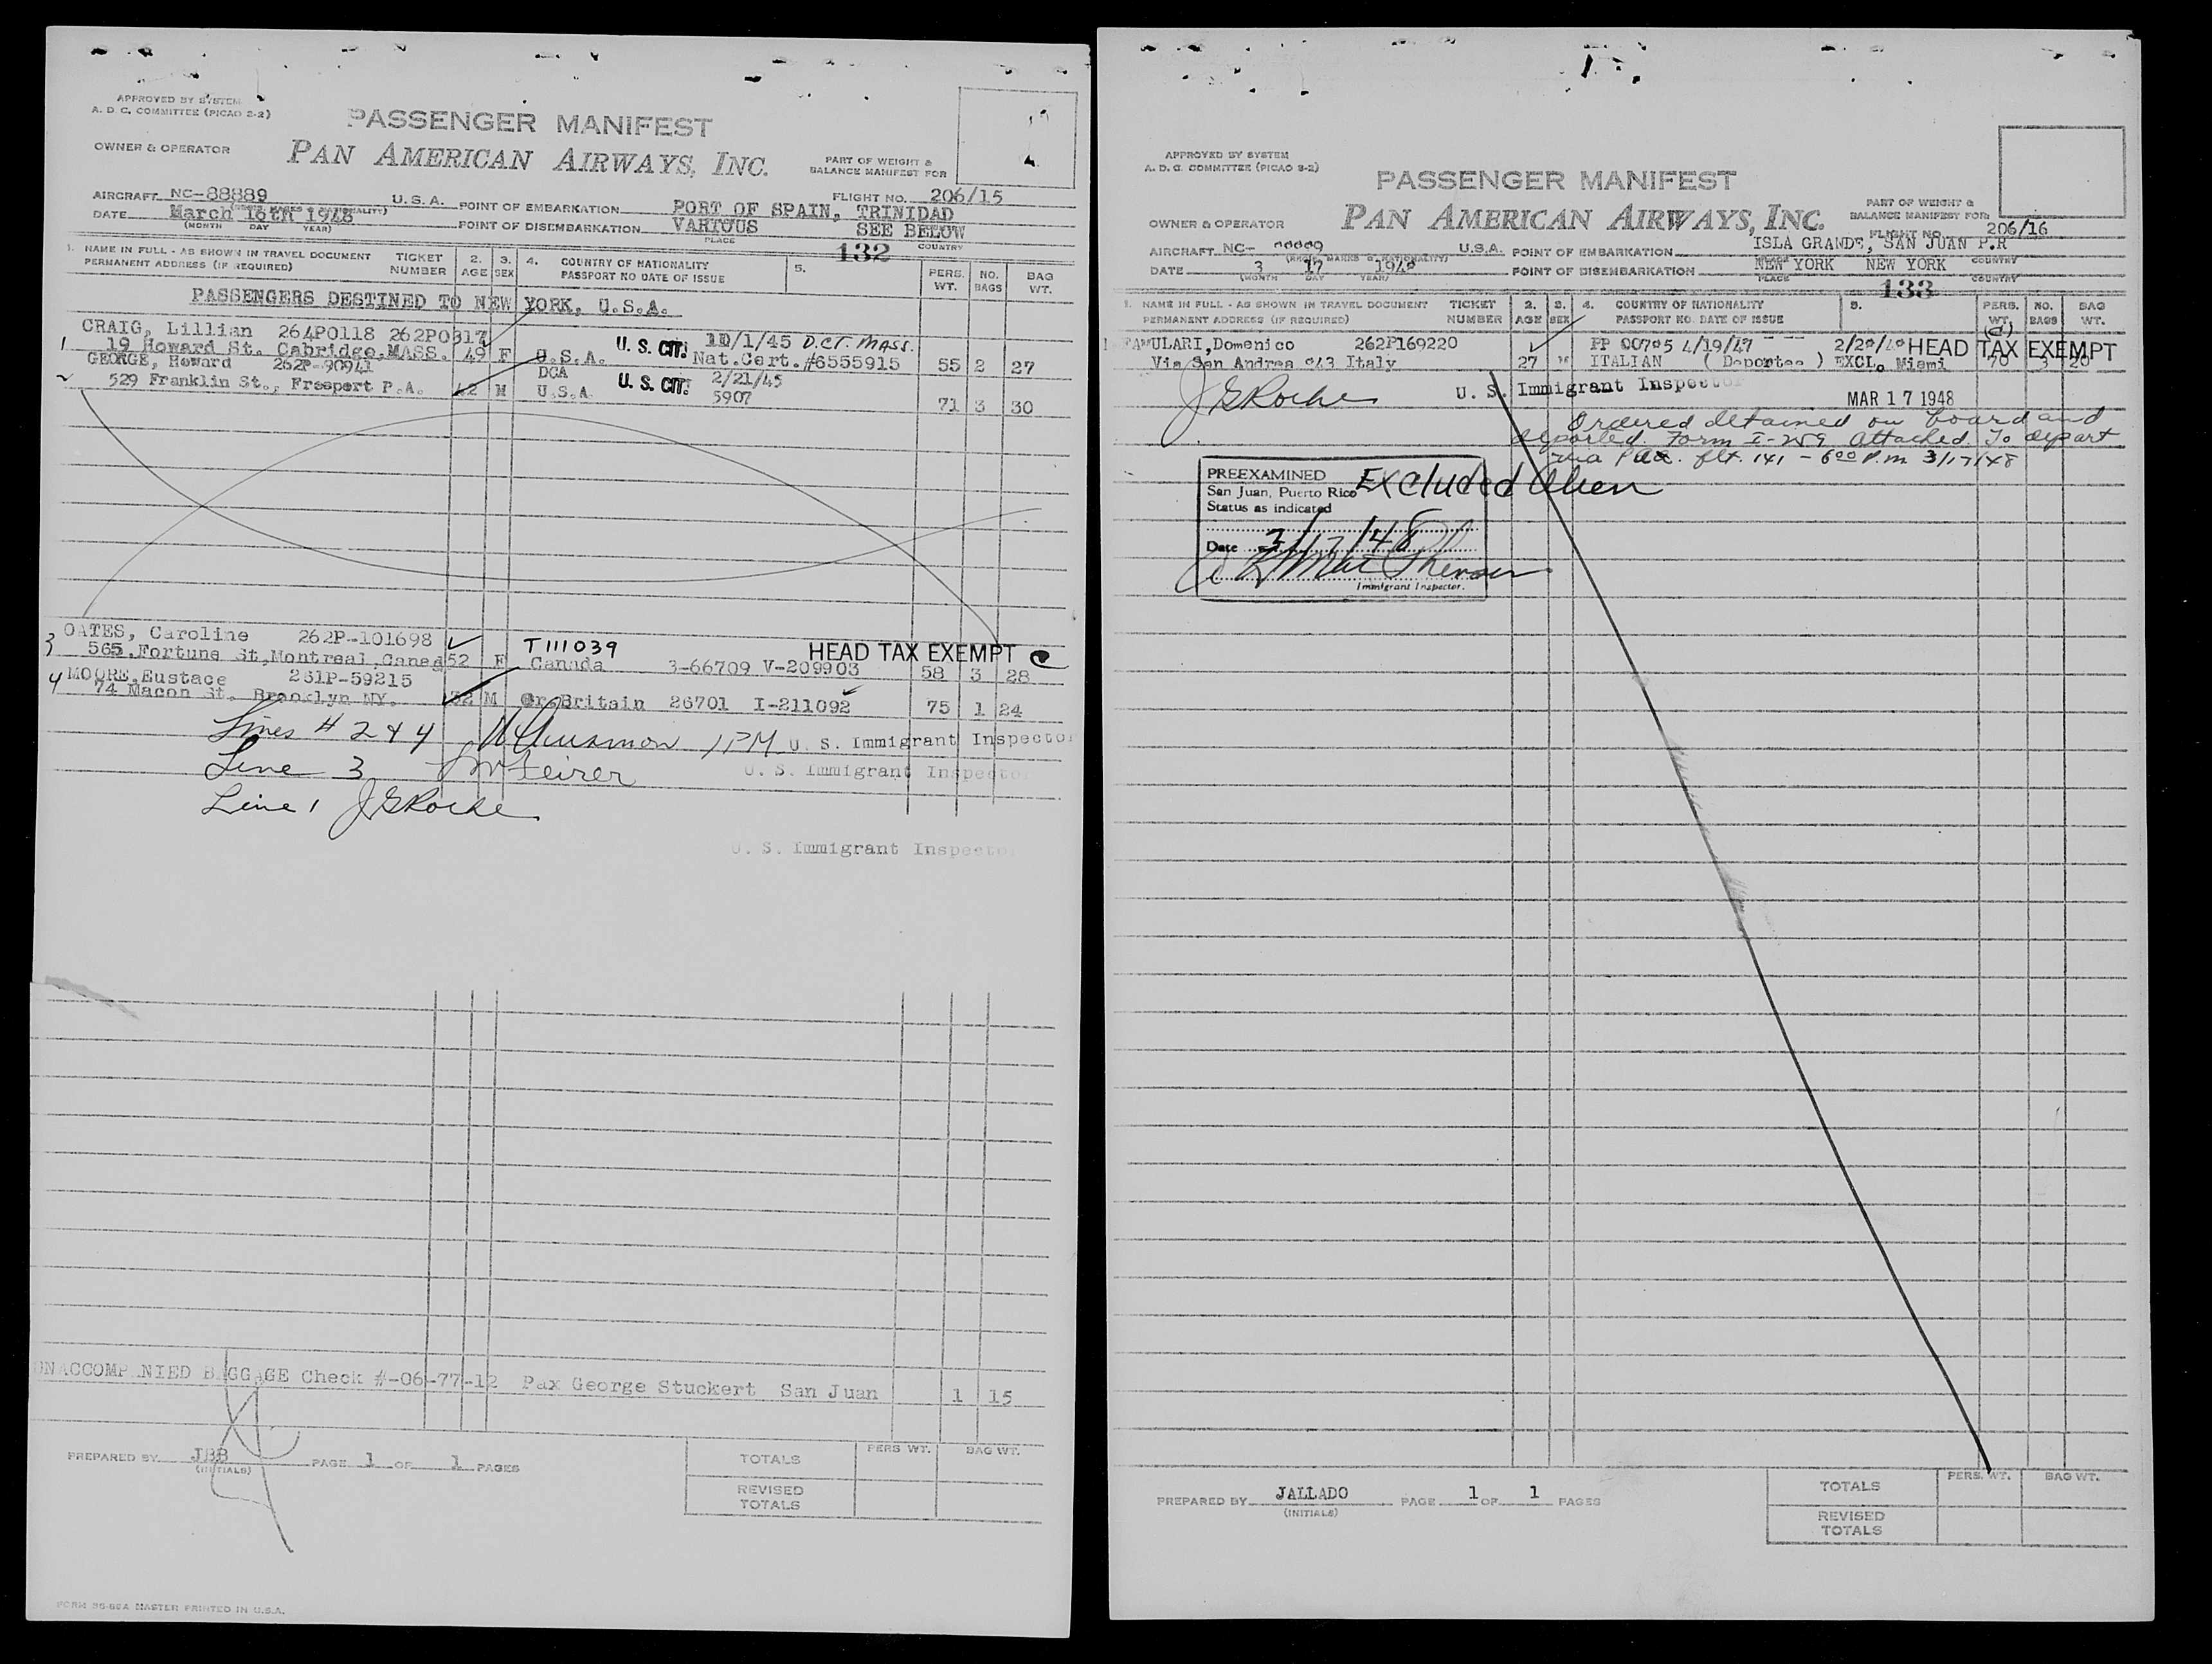 APPROVED BY SYSTEM
A. D. C. COMMITTEE (PICAO 2-2)
PASSENGER MANIFEST
OWNER & OPERATOR
PAN AMERICAN AIRWAYS, INC.
PART OF WEIGHT &
BALANCE MANIFEST FOR
AIRCRAFT NC-88889 U.S.A. POINT OF EMBARKATION PORT OF SPAIN, TRINIDAD
FLIGHT NO. 206/15
DATE March 16th 1948 POINT OF DISEMBARKATION VARIOUS SEE BELOW
(MONTH DAY YEAR) PLACE COUNTRY
132
1. NAME IN FULL - AS SHOWN IN TRAVEL DOCUMENT TICKET 2. 3. 4. COUNTRY OF NATIONALITY 5. PERS. NO. BAG
PERMANENT ADDRESS (IF REQUIRED) NUMBER AGE SEX PASSPORT NO DATE OF ISSUE WT. BAGS WT.
PASSENGERS DESTINED TO NEW YORK, U.S.A.
CRAIG, Lillian 264P0118 262P0317 U. S. CIT. 10/1/45 D.CT. MASS.
1 19 Howard St. Cabridge,MASS. 49 F U.S.A. Nat.Cert.#6555915 55 2 27
GEORGE, Howard 262P-90941 DCA U. S. CIT. 2/21/45
529 Franklin St., Freeport P.A. 42 M U.S.A. 5907 71 3 30
OATES, Caroline 262P-101698 T111039 HEAD TAX EXEMPT
3 565 Fortune St,Montreal,Canad 52 F Canada 3-66709 V-209903 58 3 28
4 MOORE,Eustace 261P-59215
74 Macon St. Brooklyn NY. 32 M Gr.Britain 26701 I-211092 75 1 24
Lines # 2 & 4 U. S. Immigrant Inspector
Line 3 U. S. Immigrant Inspector
Line 1 JGRoche
U. S. Immigrant Inspector
UNACCOMP NIED BAGGAGE Check #-06-77-12 Pax George Stuckert San Juan 1 15
PREPARED BY JBB PAGE 1 OF 1 PAGES
(INITIALS)
TOTALS PERS WT. BAG WT.
REVISED
TOTALS
FORM 36-88A MASTER PRINTED IN U.S.A.
APPROVED BY SYSTEM
A. D. C. COMMITTEE (PICAO 2-2)
PASSENGER MANIFEST
OWNER & OPERATOR
PAN AMERICAN AIRWAYS, INC.
PART OF WEIGHT &
BALANCE MANIFEST FOR
FLIGHT NO. 206/16
AIRCRAFT NC- U.S.A. POINT OF EMBARKATION ISLA GRANDE, SAN JUAN P.R
DATE 3 17 1948 POINT OF DISEMBARKATION NEW YORK NEW YORK
(MONTH DAY YEAR) PLACE COUNTRY
133
1. NAME IN FULL - AS SHOWN IN TRAVEL DOCUMENT TICKET 2. 3. 4. COUNTRY OF NATIONALITY 5. PERS. NO. BAG
PERMANENT ADDRESS (IF REQUIRED) NUMBER AGE SEX PASSPORT NO. DATE OF ISSUE WT. BAGS WT.
FAMULARI,Domenico 262P169220 PP 4/19/47 HEAD TAX EXEMPT
Via San Andrea Italy 27 M ITALIAN (Deportee) EXCL. Miami 70 3 20
JGRoche U. S. Immigrant Inspector
MAR 17 1948
Ordered detained on board and
deported. Form I-259 attached. To depart
via Paa. flt. 141 - 6:00 P.m 3/17/48
PREEXAMINED Excluded Alien
San Juan, Puerto Rico
Status as indicated
Date 3/17/48
Immigrant Inspector.
PREPARED BY JALLADO PAGE 1 OF 1 PAGES
(INITIALS)
TOTALS PERS. WT. BAG WT.
REVISED
TOTALS